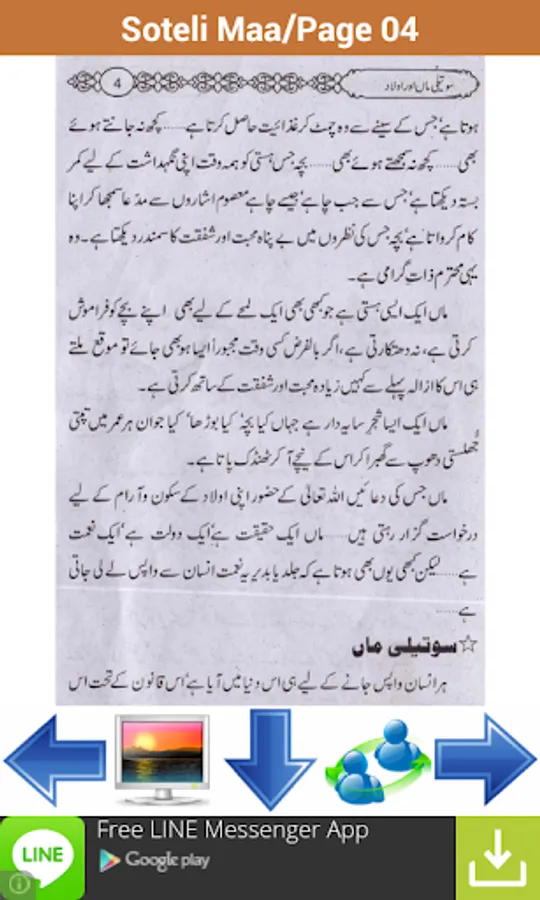 Soteli Maa/Page 04
4
سوتیلی ماں اور اولاد
ہوتا ہے‘ جس کے سینے سے وہ چمٹ کر غذائیت حاصل کرتا ہے...... کچھ نہ جانتے ہوئے
بھی...... کچھ نہ سمجھتے ہوئے بھی...... بچہ جس ہستی کو ہمہ وقت اپنی نگہداشت کے لیے کمر
بستہ دیکھتا ہے‘ جس سے جب چاہے‘ جیسے چاہے معصوم اشاروں سے مدّعا سمجھا کر اپنا
کام کرواتا ہے‘ بچہ جس کی نظروں میں بے پناہ محبت اور شفقت کا سمندر دیکھتا ہے۔ وہ
یہی محترم ذاتِ گرامی ہے۔
ماں ایک ایسی ہستی ہے جو کبھی بھی ایک لمحے کے لیے بھی اپنے بچے کو فراموش
کرتی ہے، نہ دھتکارتی ہے، اگر بالفرض کسی وقت مجبوراً ایسا ہو بھی جائے تو موقع ملتے
ہی اس کا ازالہ پہلے سے کہیں زیادہ محبت اور شفقت کے ساتھ کرتی ہے۔
ماں ایک ایسا شجرِ سایہ دار ہے جہاں کیا بچہ‘ کیا بوڑھا‘ کیا جوان ہر عمر میں تپتی
جُھلستی دھوپ سے گھبرا کر اس کے نیچے آ کر ٹھنڈک پاتا ہے۔
ماں جس کی دعائیں اللہ تعالیٰ کے حضور اپنی اولاد کے سکون و آرام کے لیے
درخواست گزار رہتی ہیں...... ماں ایک حقیقت ہے‘ ایک دولت ہے‘ ایک نعمت
ہے...... لیکن کبھی یوں بھی ہوتا ہے کہ جلد یا بدیر یہ نعمت انسان سے واپس لے لی جاتی
ہے......
☆ سوتیلی ماں
ہر انسان واپس جانے کے لیے ہی اس دنیا میں آیا ہے‘ اس قانون کے تحت اس
LINE
Free LINE Messenger App
Google play